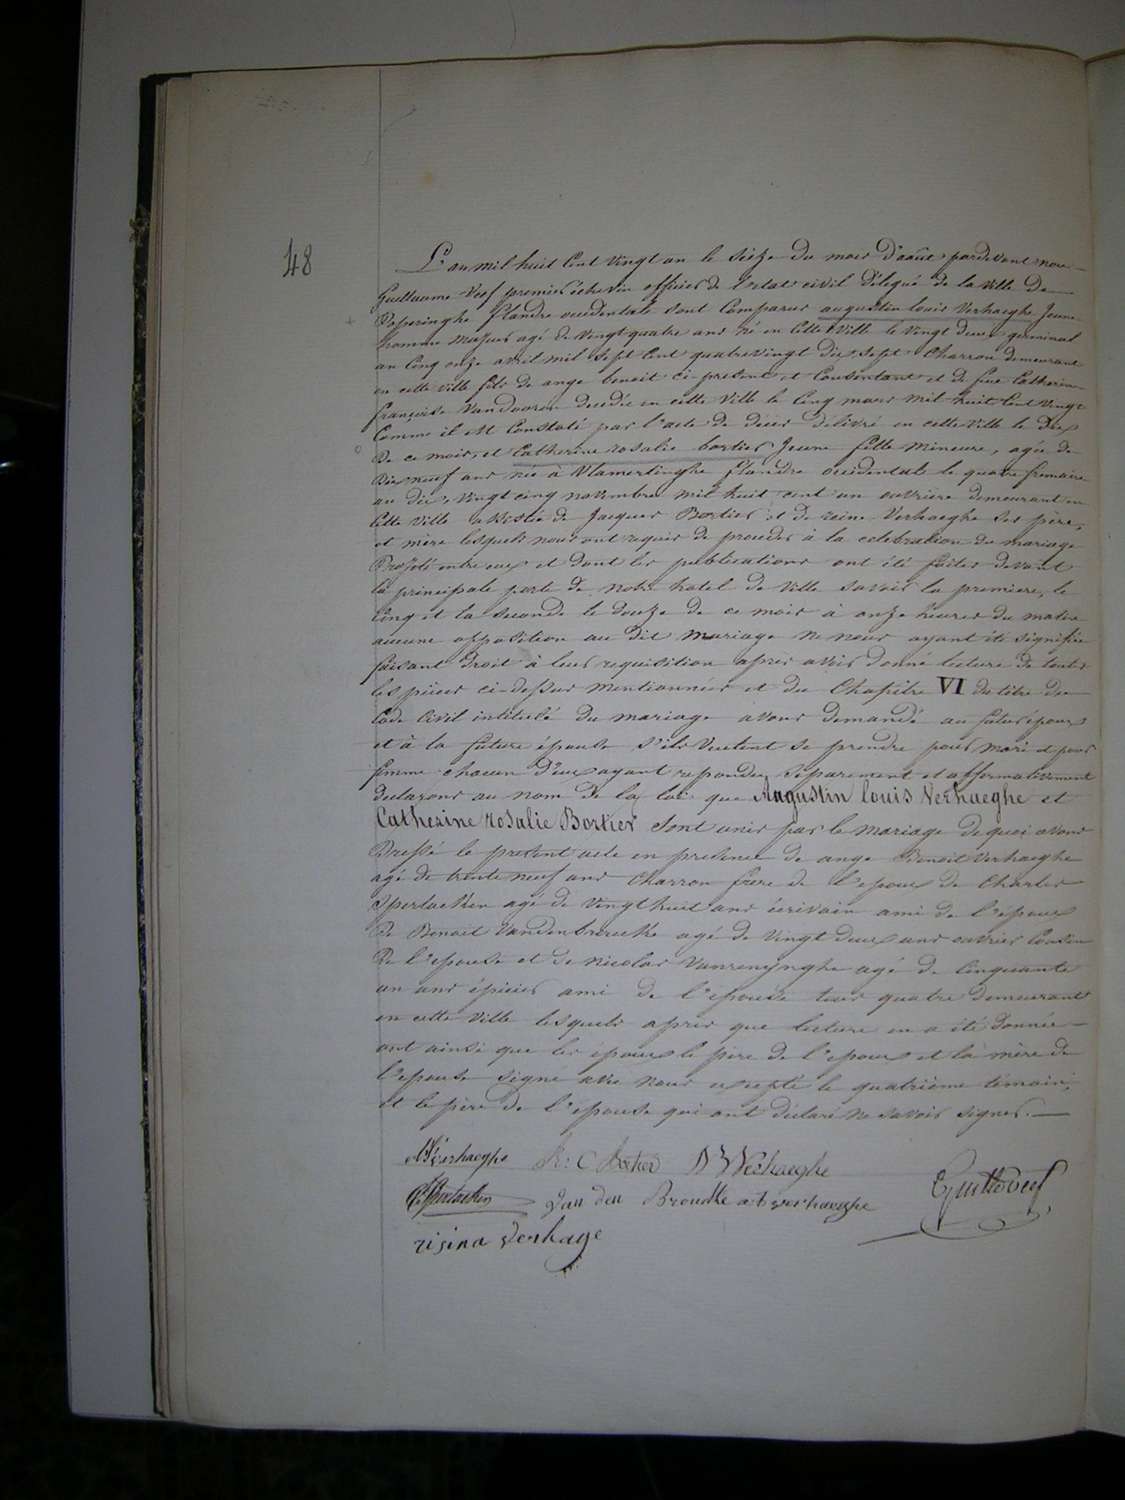 48
L'an mil huit Cent Vingt un le Seize du mois d'août pardevant nous
Guillaume Veef premier échevin officier de l'etat civil délégué de la ville de
Poperinghe Flandre occidentale sont Comparus augustin louis Verhaeghe Jeune
homme majeur agé de Vingt quatre ans né en Cette Ville le Vingt deux germinal
an Cinq onze avril mil Sept Cent quatrevingt dix Sept Charron demeurant
en cette Ville fils de ange benoit ci-present et Consentant et de feue Catherine
françoise Vandooren decedée en cette Ville le Cinq mars mil huit Cent Vingt
Comme il est Constaté par l'acte de décès délivré en cette Ville le Dix
De ce mois, et Catherine rosalie bortier Jeune fille Mineure, agée de
Dix neuf ans née à Vlamertinghe flandre occidentale le quatre frimaire
an dix, Vingt cinq novembre mil huit cent un ouvrière demeurant en
Cette Ville assistée de Jacques Bortier et de reine Verhaeghe Ses père,
et mère lesquels nous ont requis de proceder à la celebration du mariage
Projeté entre eux et dont les publications ont été faites devant
la principale porte de notre hotel de Ville savoir la premiere, le
Cinq et la seconde le douze de ce mois à onze heures du matin
aucune opposition au dit mariage ne nous ayant été signifiée
faisant droit à leur requisition après avoir donné lecture de toutes
les pièces ci-dessus mentionnées et du Chapitre VI du titre du
Code Civil intitulé du mariage avons demandé au futur époux
et à la future épouse s'ils Veulent se prendre pour mari et pour
femme chacun d'eux ayant repondu séparement et affirmativement
declarons au nom de la loi que Augustin louis Verhaeghe et
Catherine rosalie Bortier sont unis par le mariage de quoi avons
Dressé le present acte en presence de ange Benoit Verhaeghe
agé de trente neuf ans Charron frère de l'epoux de Charles
Spertacken agé de Vingt huit ans écrivain ami de l'époux
De Benoit Vandenbroucke agé de Vingt deux ans ouvrier Cousin
De l'epouse et de nicolas Vanrenynghe agé de Cinquante
un ans épicier ami de l'epouse tous quatre demeurant
en cette Ville lesquels après que lecture en a été donnée
ont ainsi que les époux le père de l'epoux et la mère de
l'epouse signé avec nous excepté le quatrième témoin,
et le père de l'épouse qui ont déclaré ne savoir signer.
Verhaeghe R: C Bortier Verhaeghe
Van den Broucke a b verhaeghe
risina Verhage